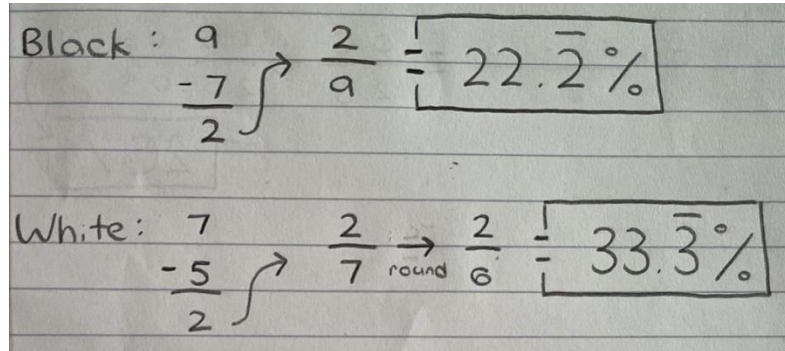 Black: 9
-7
2
2/9 = 22.2̅%
White: 7
-5
2
2/7 → round 2/6 = 33.3̅%